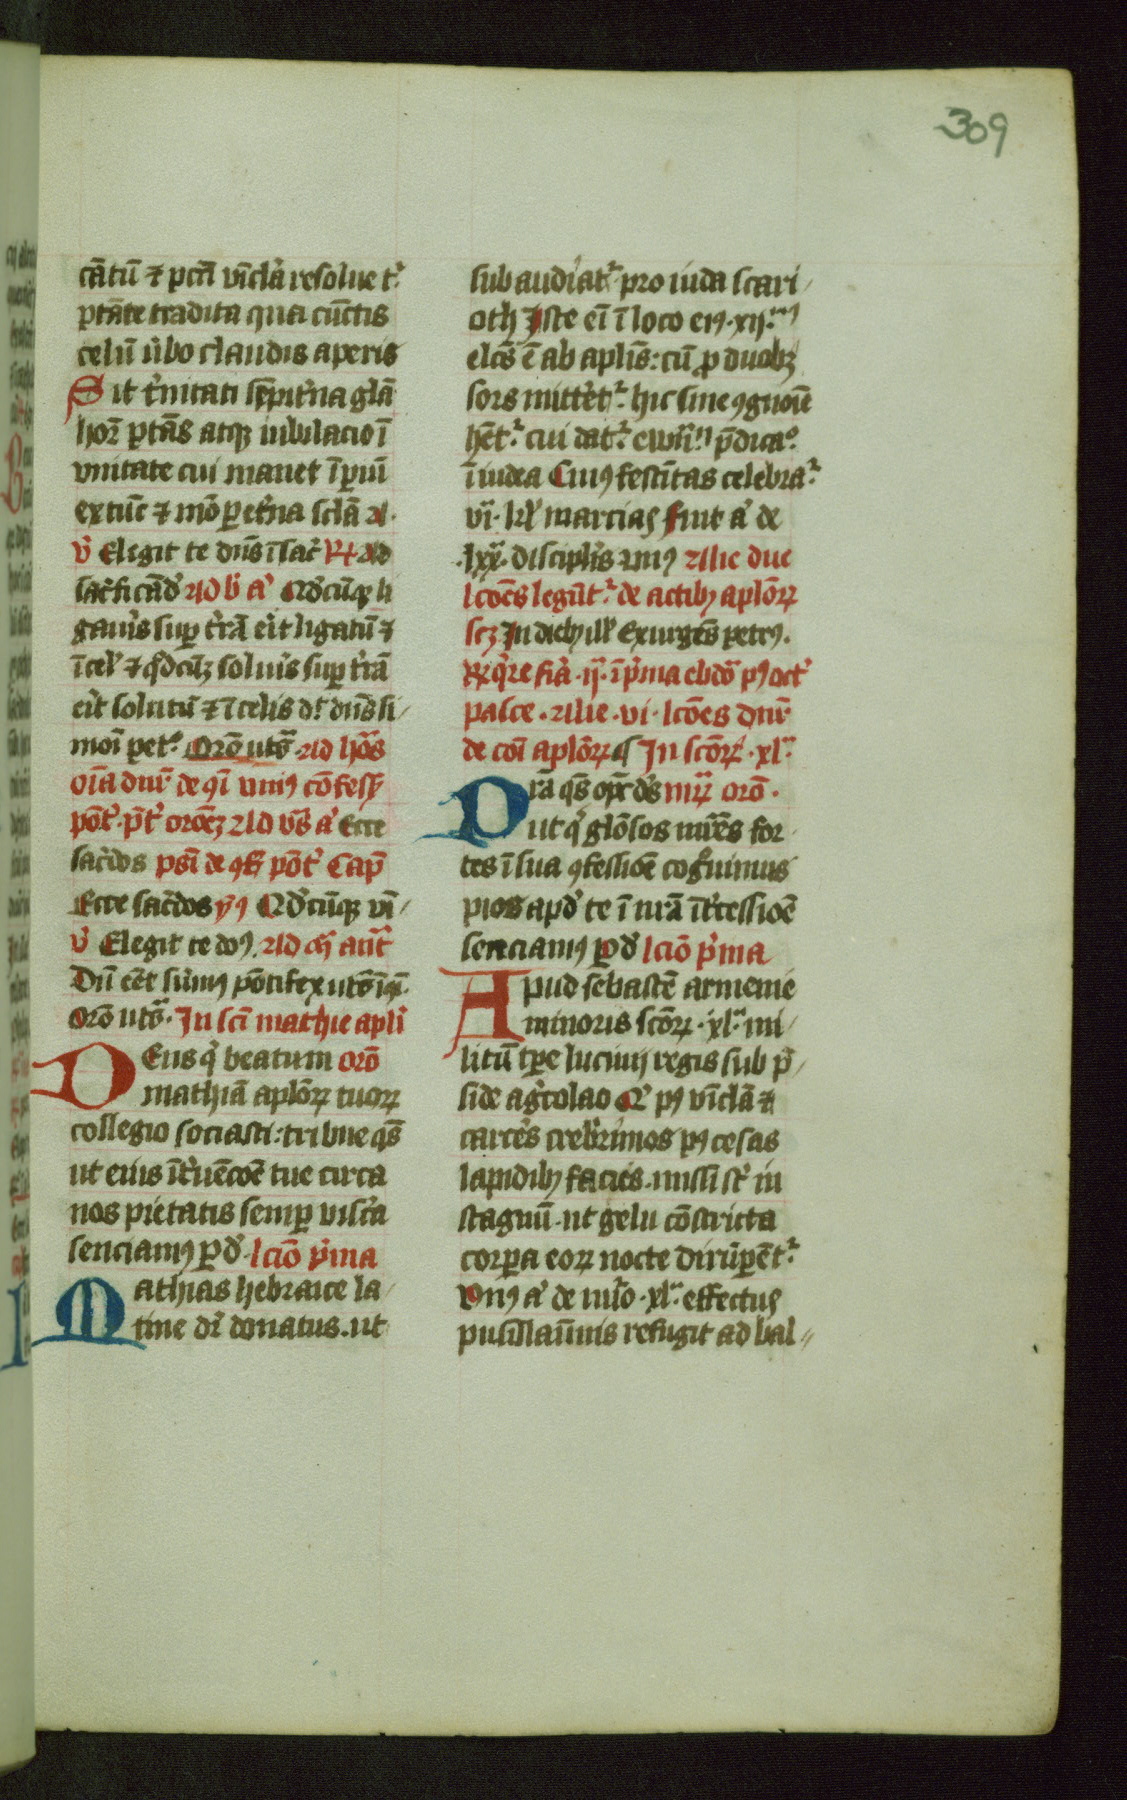 309
cātiū ⁊ pctī vīcl'a resolue t'
ptāte tradita qua cūctis
celū ūbo claudis aperis
Sit t'nitati sēpit'na glā
hor̄ ptās atq; iubilacio ī
vnitate cui manet īpiū
extūc ⁊ mō p et'na sclā a.
v̄ Elegit te dn̄s ī sac̄ Rx Ad
sac'ficād' Ad b̄ a' Qdcūq; li
gaūis sup t'rā erit ligatū ⁊
ī cel' ⁊ qdcūz soluīs sup t'rā
erit solutū ⁊ ī celis d't dn̄s si/
moī pet°. Oro ut s̄ Ad ho'as
oīa dur̄ de qī vniꝰ cōfess̄
pōt'. p̄t' oroēz Ad v̄s a' Ecce
sac'dos psī de qf̄ pōt' Cap̄
Ecce sac'dos yꝰ Qd'cūq; vī/
v̄ Elegit te doꝰ. Ad m̄ an̄t
Dū eēt sūmꝰ pōtifex ut s̄
oro ut s̄. In sc̄i mathie apl'i
Deus q' beatum oro
mathiā aplo̅ꝝ tuoꝝ
collegio sociasti: tribue qs̄
ut eius īt'uēcōē tue circa
nos pietatis semp visc'a
senciamꝰ P d'. lcio p'ma
Mathias hebraice la/
tine d'r donatus. ut
subaudiat' pro iuda scari/
oth Iste eī ī loco eiꝰ. xij.ᵐꝰ
elcs̄ ē ab aplis̄: cū p duobꝫ
sors mitt'et'. hic sine ꝯgnoīe
hēt'. cui dat'. ewn̄ᵐ p̄dica°
ī iudea Cuiꝰ festītas celebra'
vi. kl' marcias fuit a' de
.lxx. disciplīs vniꝰ Alie due
lcoēs legūt' de actibꝫ aplo̅ꝝ
scꝫ In diebꝫ ill' Exurgēs petrꝰ.
Rx q're fīa .ij. ī p'ma ebdō pꝰ oct'
pasce. Alie .vi. lcoēs dur̄
de coī aplo̅ꝝ ¶ In scōꝝ. xl.ᵃ
Pra qs̄ op̄s ds̄ mꝝ oro.
ut q' glo̅sos mr̄es for
tes ī sua ꝯfessiōē cog'uimus
pios apd' te ī nr̄a īt'cessiōē
senciamꝰ P d' lcio p'ma
Apud sebastē armenie
minoris scōꝝ. xl.ᵃ mi/
litū tpe lucinij regis sub p̄/
side ag'colao Q' pꝰ vīclā ⁊
carc'es creb'rimos pꝰ cesas
lapidibꝫ facies. missi st' in
stagnū. ut gelu cōstricta
corpa eoꝝ nocte dirūpēt'
Vnꝰ a' de nu'o. xl.ᵃ effectus
pusillaūmis refugit ad bal/